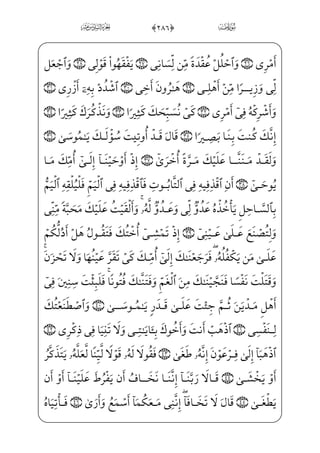 ﴿٢٨٦﴾
أَمْرِى ۝٢٦ وَٱحْلُلْ عُقْدَةً مِّن لِّسَانِى ۝٢٧ يَفْقَهُوا۟ قَوْلِى ۝٢٨ وَٱجْعَل
لِّى وَزِيرًا مِّنْ أَهْلِى ۝٢٩ هَـٰرُونَ أَخِى ۝٣٠ ٱشْدُدْ بِهِۦٓ أَزْرِى ۝٣١
وَأَشْرِكْهُ فِىٓ أَمْرِى ۝٣٢ كَىْ نُسَبِّحَكَ كَثِيرًا ۝٣٣ وَنَذْكُرَكَ كَثِيرًا ۝٣٤
إِنَّكَ كُنتَ بِنَا بَصِيرًا ۝٣٥ قَالَ قَدْ أُوتِيتَ سُؤْلَكَ يَـٰمُوسَىٰ ۝٣٦
وَلَقَدْ مَنَنَّا عَلَيْكَ مَرَّةً أُخْرَىٰٓ ۝٣٧ إِذْ أَوْحَيْنَآ إِلَىٰٓ أُمِّكَ مَا
يُوحَىٰٓ ۝٣٨ أَنِ ٱقْذِفِيهِ فِى ٱلتَّابُوتِ فَٱقْذِفِيهِ فِى ٱلْيَمِّ فَلْيُلْقِهِ ٱلْيَمُّ
بِٱلسَّاحِلِ يَأْخُذْهُ عَدُوٌّ لِّى وَعَدُوٌّ لَّهُۥ ۚ وَأَلْقَيْتُ عَلَيْكَ مَحَبَّةً مِّنِّى
وَلِتُصْنَعَ عَلَىٰ عَيْنِىٓ ۝٣٩ إِذْ تَمْشِىٓ أُخْتُكَ فَتَقُولُ هَلْ أَدُلُّكُمْ
عَلَىٰ مَن يَكْفُلُهُۥ ۖ فَرَجَعْنَـٰكَ إِلَىٰٓ أُمِّكَ كَىْ تَقَرَّ عَيْنُهَا وَلَا تَحْزَنَ ۚ
وَقَتَلْتَ نَفْسًا فَنَجَّيْنَـٰكَ مِنَ ٱلْغَمِّ وَفَتَنَّـٰكَ فُتُونًا ۚ فَلَبِثْتَ سِنِينَ فِىٓ
أَهْلِ مَدْيَنَ ثُمَّ جِئْتَ عَلَىٰ قَدَرٍ يَـٰمُوسَىٰ ۝٤٠ وَٱصْطَنَعْتُكَ
لِنَفْسِى ۝٤١ ٱذْهَبْ أَنتَ وَأَخُوكَ بِـَٔايَـٰتِى وَلَا تَنِيَا فِى ذِكْرِى ۝٤٢
ٱذْهَبَآ إِلَىٰ فِرْعَوْنَ إِنَّهُۥ طَغَىٰ ۝٤٣ فَقُولَا لَهُۥ قَوْلًا لَّيِّنًا لَّعَلَّهُۥ يَتَذَكَّرُ
أَوْ يَخْشَىٰ ۝٤٤ قَالَا رَبَّنَآ إِنَّنَا نَخَافُ أَن يَفْرُطَ عَلَيْنَآ أَوْ أَن
يَطْغَىٰ ۝٤٥ قَالَ لَا تَخَافَآ ۖ إِنَّنِى مَعَكُمَآ أَسْمَعُ وَأَرَىٰ ۝٤٦ فَأْتِيَاهُ